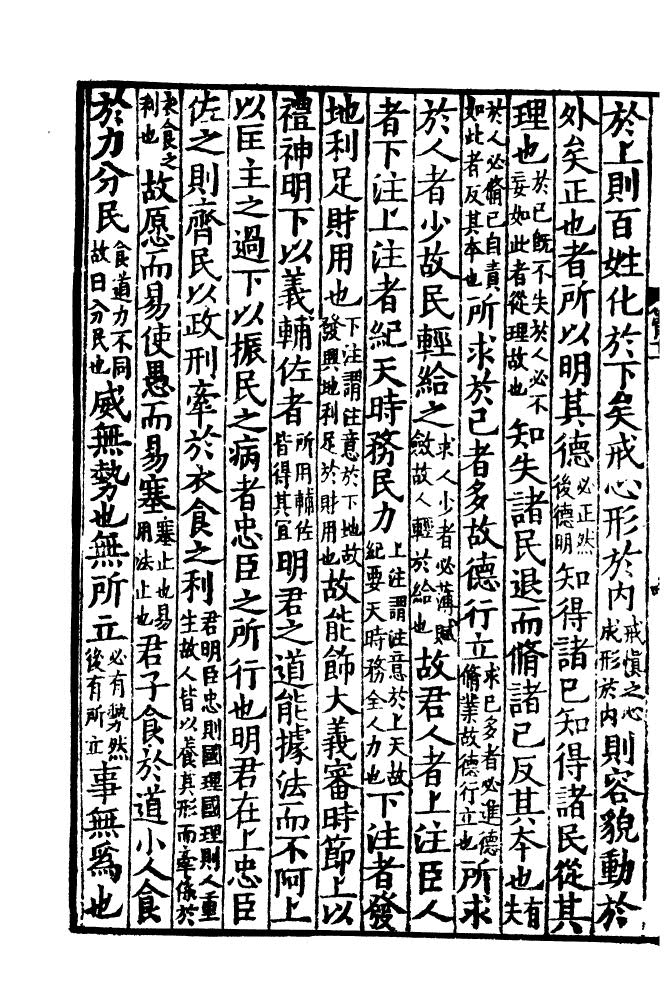 於上則百姓化於下矣戒心形於內戒慎之心成形於內則容貌動於
外矣正也者所以明其德必正然後德明知得諸己知得諸民從其
理也於己旣不失於人必不妄如此者從理故也知失諸民退而脩諸己反其本也有失
於人必脩己自責如此者反其本也所求於己者多故德行立求己多者必進德脩業故德行立也所求
於人者少故民輕給之求人少者必薄賦斂故人輕於給也故君人者上注臣人
者下注上注者紀天時務民力上注謂注意於上天故紀要天時務全人力也下注者發
地利足財用也下注謂注意於下地故發興地利足於財用也故能飾大義審時節上以
禮神明下以義輔佐者所用輔佐皆得其宜明君之道能據法而不阿上
以匡主之過下以振民之病者忠臣之所行也明君在上忠臣
佐之則齊民以政刑牽於衣食之利君明臣忠則國理國理則人重生故人皆以養其形而牽係於
衣食之利也故愿而易使愚而易塞塞止也易用法止也君子食於道小人食
於力分民食道力不同故曰分民也威無勢也無所立必有勢然後有所立事無爲也